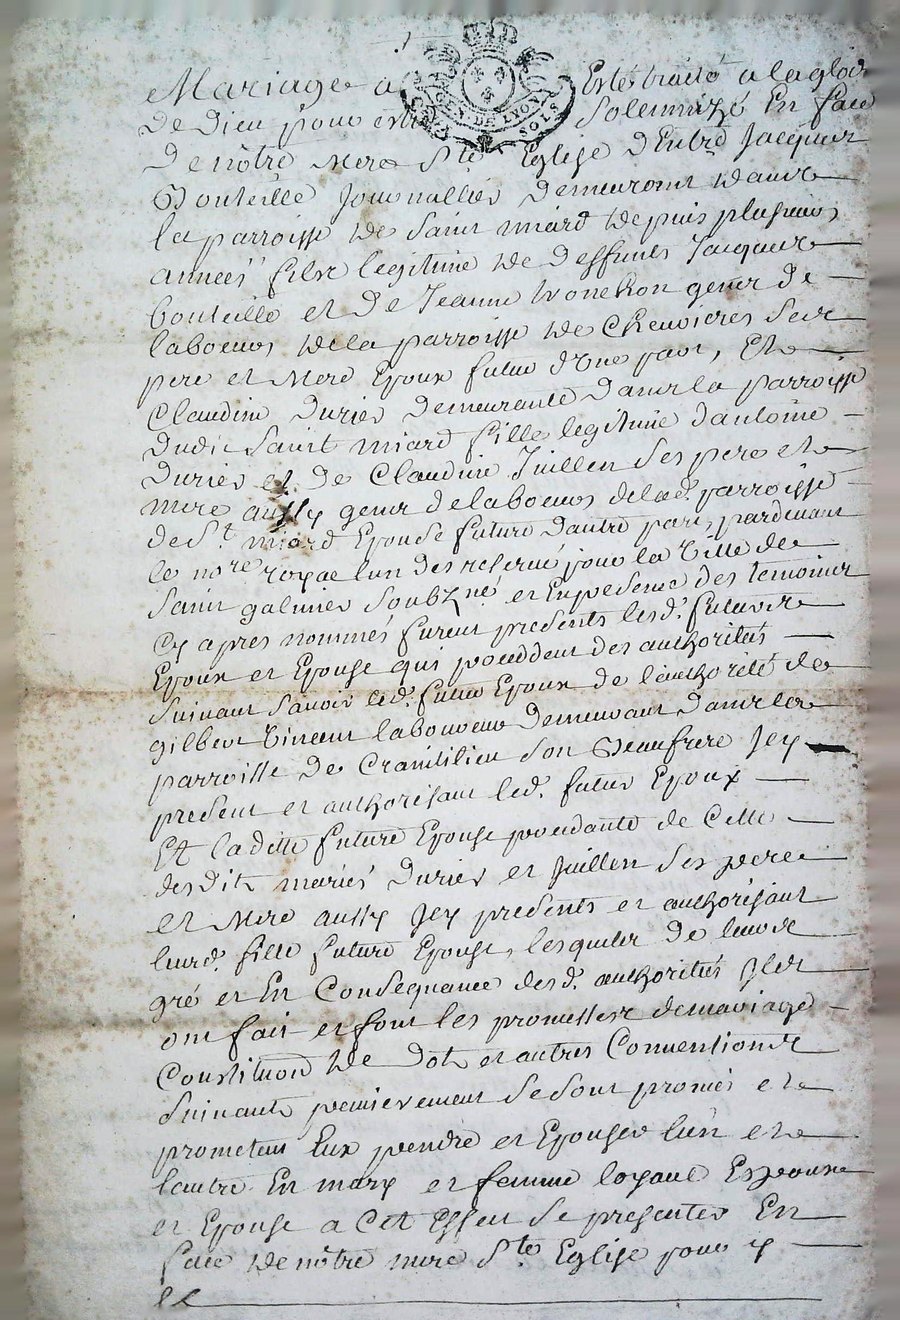 Mariage a Esté traité a la gloire
GEN. DE LYON
SOLS
De Dieu pour estre Solemnizé En face
De nôtre Mere Ste Eglise D'Entre Jacques
Bouteille Journallier Demeurant dans
la parroisse de Saint miard depuis plusieurs
années fils legitime de Deffunts Jacques
bouteille et De Jeanne gens de
labeurs de la parroisse de Chevrieres Ses
pere et Mere Epoux futur d'Une part, Et
Claudine Durier Demeurante Dans la parroisse
dudit Saint miard fille legitime d'antoine
Durier et De Claudine Juillen Ses pere et
mere aussy gens de labeurs de lad. parroisse
de St. miard Epouse future Dautre part, pardevant
le nore royal lun des reservé pour la Ville de
Saint galmier Soubzné et En presence des temoins
Cy apres nommés furent presents lesd. futurs
Epoux et Epouse qui procedent des authorités
Suivant Savoir led. futur Epoux de l'authorité de
gilbert Vincent laboureur Demeurant Dans la
parroisse de Craintilieu Son Beaufrere Jcy
present et authorisant led. futur Epoux
Et laditte future Epouse procedante de Celle
desdits mariés Durier et Juillen Ses pere
et Mere aussy Jcy presents et authorisant
leurd. fille future Epouse, lesquels de leurs
gré et En Consequance desd. authorités Jls
ont fait et font les promesses de mariage
Constitution de Dot et autres Conventions
Suivants premierement Se Sont promis et
prometent Eux prendre et Epouser lun et
lautre En mary et femme loyaux Espoux
et Epouse a Cet Effet Se presenter En
face de nôtre mere Ste Eglise pour y